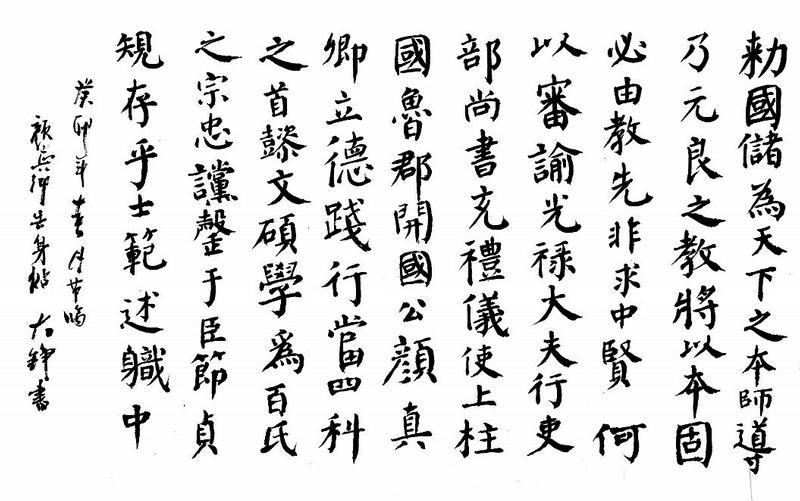 勑國儲為天下之本師導
乃元良之教將以本固
必由教先非求中賢何
以審諭光禄大夫行吏
部尚書充禮儀使上柱
國魯郡開國公顏真
卿立德踐行當四科
之首懿文碩學爲百氏
之宗忠讜罄于臣節貞
規存乎士範述軄中
癸卯年
顏真卿告身帖 書